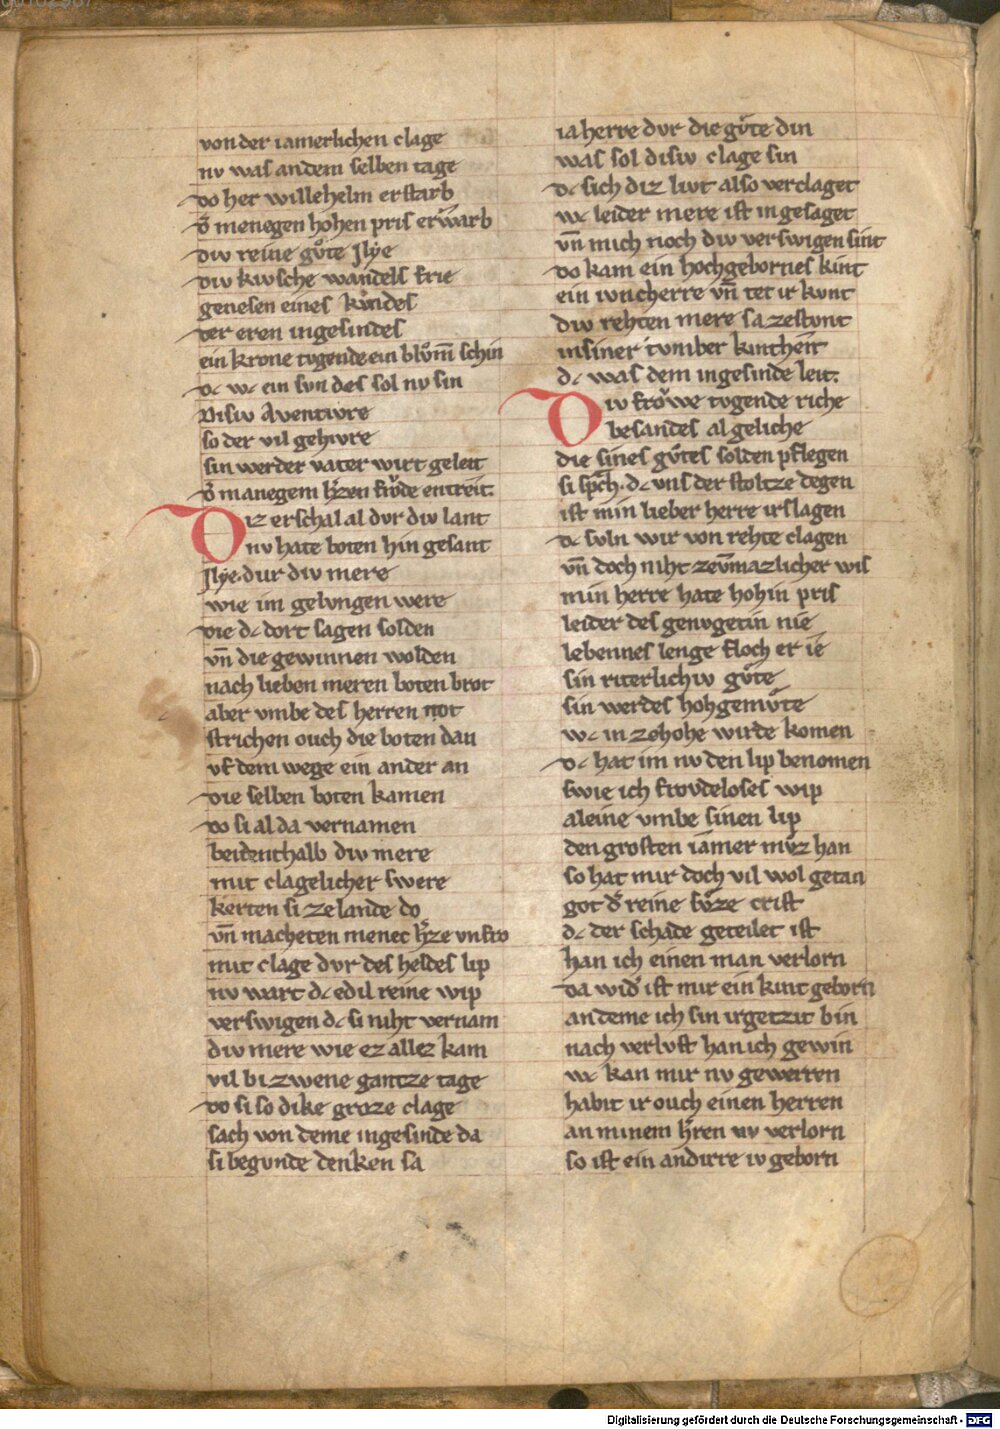 von der iamerlichen clage
nv was an dem selben tage
do her willehelm erstarb
dˢ menegen hohen pris erwarb
div reine gůte Jlye
div kivsche wandels frie
genesen eines kindes
der eren ingesindes
ein krone tvgende ein blům̄ schin
dc wc ein svn des sol nv sin
Disiv Aventivre
so der vil gehivre
sin werder vater wirt geleit
dˢ manegem hˢzen frǒde entreit.
Diz erschal al dvr div lant
nv hate boten hin gesant
Jlye. dur div mere
wie im gelvngen were
die dc dort sagen solden
vn̄ die gewinnen wolden
nach lieben meren boten brot
aber vmbe des herren not
strichen ouch die boten dan
vf dem wege ein ander an
die selben boten kamen
do si al da vernamen
beidenthalb div mere
mit clagelicher swere
kerten si ze lande do
vn̄ macheten menec hˢze vnfro
mit clage dvr des heldes lip
nv wart dc edil reine wip
verswigen dc si niht vernam
div mere wie ez allez kam
vil bi zwene gantze tage
do si so dike groze clage
sach von deme ingesinde da
si begvnde denken sa
ia herre dvr die gůte din
was sol disiv clage sin
dc sich diz livt also verclaget
wc leider mere ist in gesaget
vn̄ mich noch div verswigen sint
do kam ein hochgebornes kint
ein ivncherre vn̄ tet ir kvnt
div rehten mere sa zestvnt
in siner tvmber kintheit
dc was dem ingesinde leit.
Div frǒwe tvgende riche
besandes al geliche
die sines gůtes solden pflegen
si spͣch. dc vns der stoltze degen
ist min lieber herre irslagen
dc svln wir von rehte clagen
vn̄ doch niht ze vn̄mazlicher wis
min herre hate hohin pris
leider des genvgetin nie
lebennes lenge floch er ie
sin riterlichiv gůte
sin werdes hohgemůte
wc in ze hohe wirde komen
dc hat im nv den lip benomen
swie ich frovdeloses wip
aleine vmbe sinen lip
den grosten iamer můz han
so hat mir doch vil wol getan
got dˢ reine sůze crist
dc der schade geteilet ist
han ich einen man verlorn
da widˢ ist mir ein kint geborn
an deme ich sin irgetzit bin
nach verlvst han ich gewin
wc kan mir nv gewerren
habit ir ouch einen herren
an minem hˢren nv verlorn
so ist ein andirre iv geborn
Digitalisierung gefördert durch die Deutsche Forschungsgemeinschaft - DFG